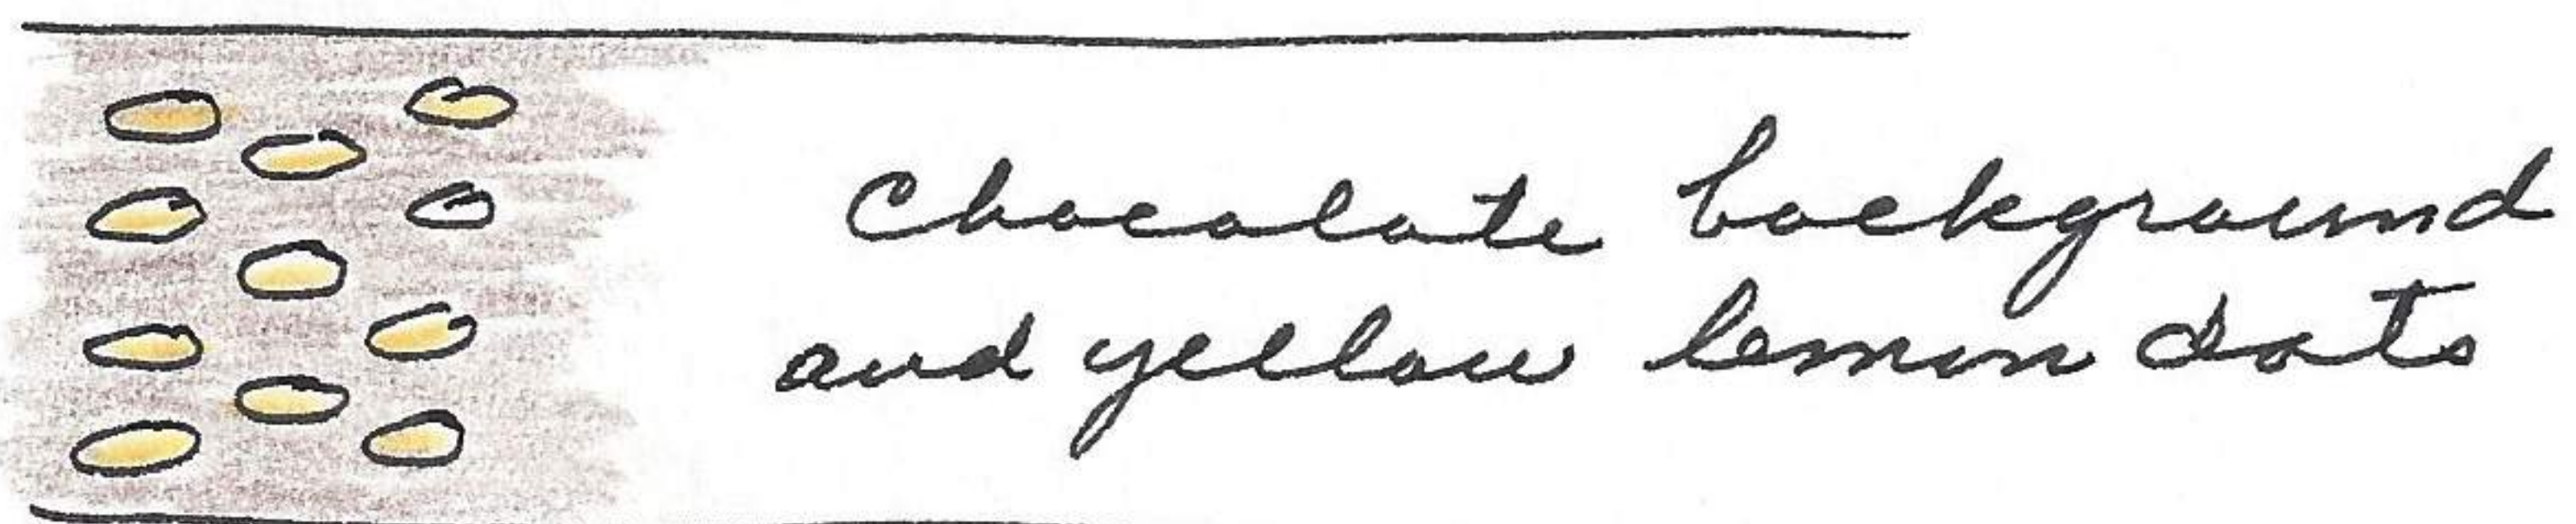 Chocolate background
and yellow lemon dots